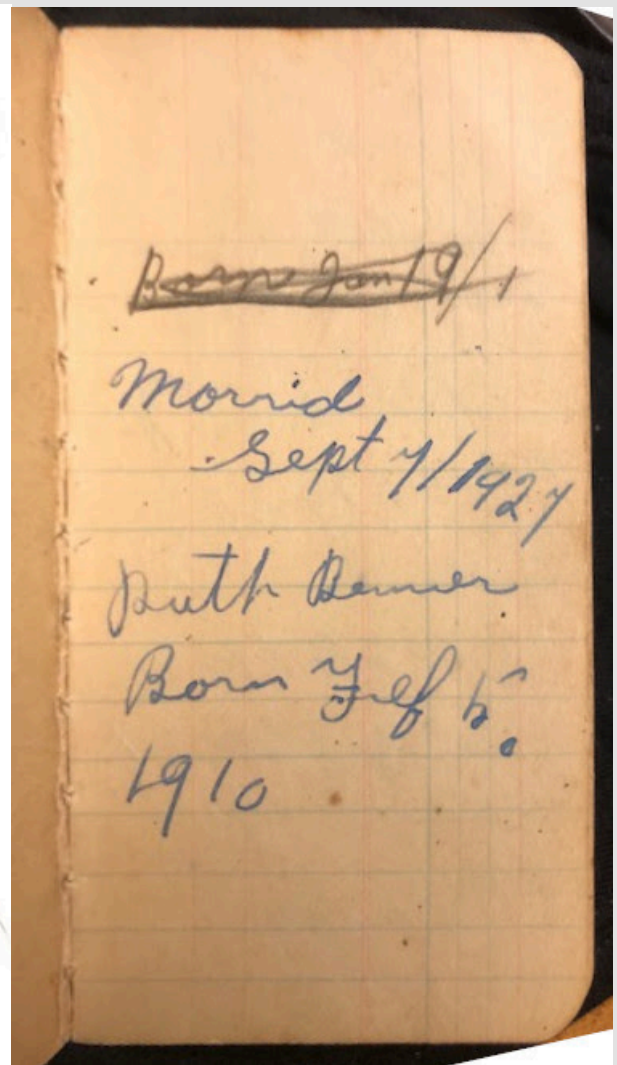 Born Jan 19/1
Morrid
Sept 7/1927
Ruth Benner
Born Feb 5.
1910